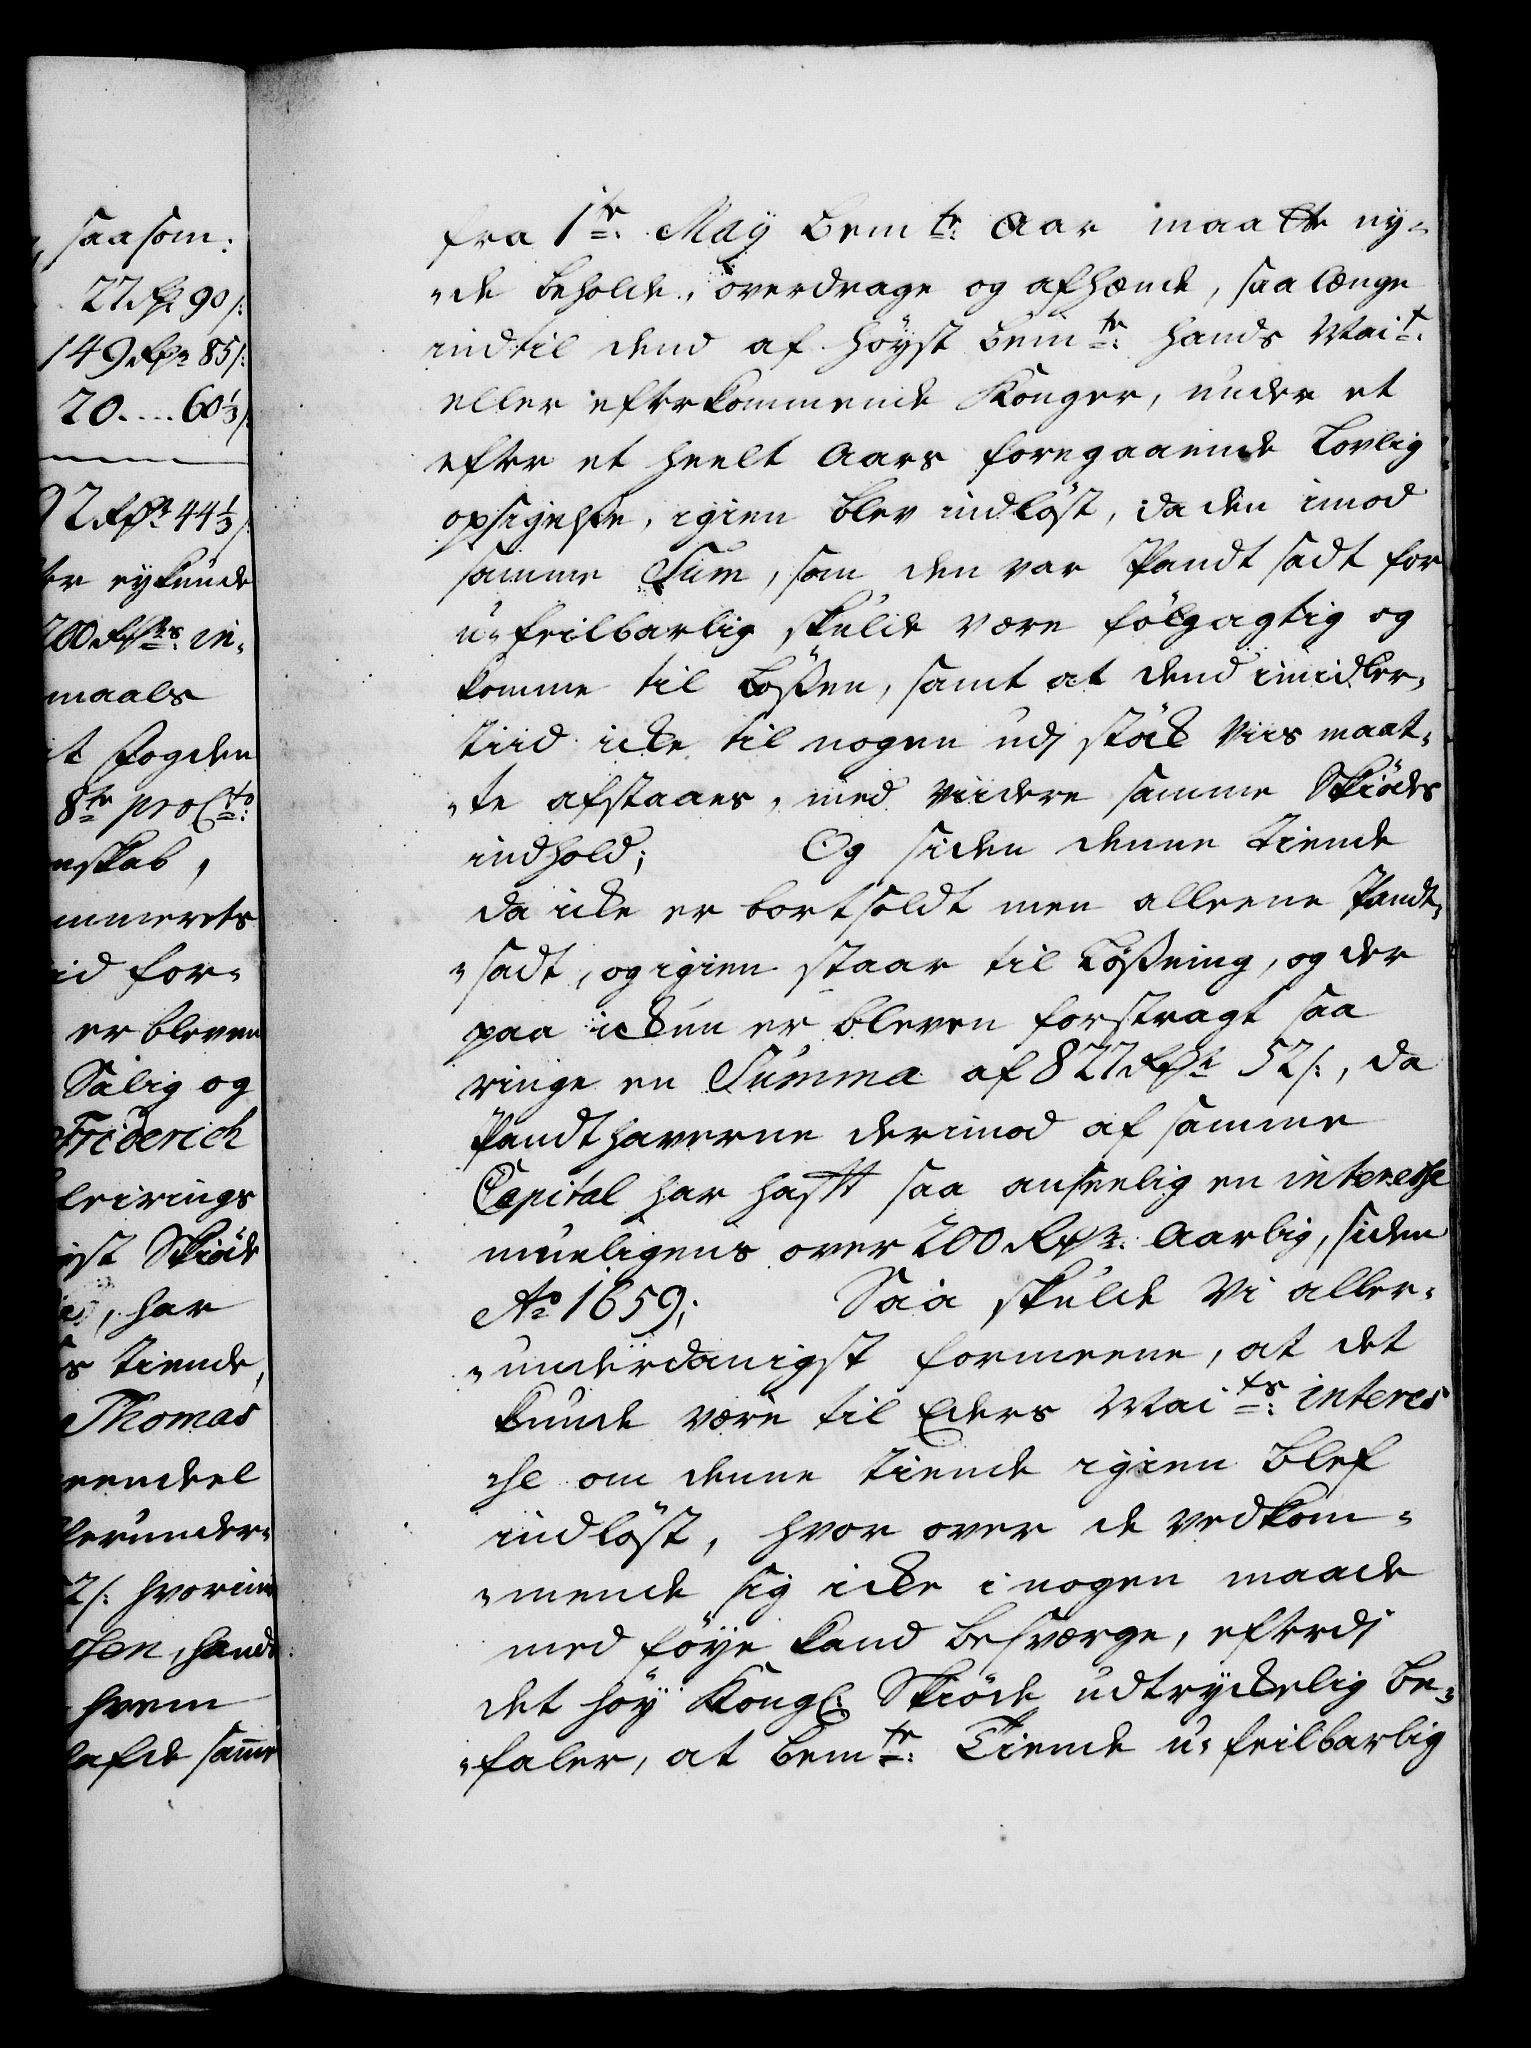 saasom:
27 Rdr 90 s:
149 Rdr 85 s:
20.... 60 1/3 s:
92 Rdr 44 1/3 s:
er ey kunde
200 Rdrs: in-
maals
it Fogden
8te pro Cto:
nskab,
mmerets
id for-
er bleven
Salig og
Friderich
leirings
yst Skiöde
, har
s tiende,
Thomas
eendeel
lerunder-
2 s: hvorim
sen, hands
hvem
hafde samme
fra 1te: May bemte: Aar maatte ny-
-de beholde, overdrage og afhænde, saa længe
indtil dend af höyst bemte: hands Mait:
eller efterkommende Konger, under et
efter et heelt Aars foregaaende Lovlig
opsigelse, igien blev indlöst, da den imod
samme Sum, som den var Pandt sadt for
u-feilbarlig skulde være fölgagtig og
komme til Lößen, samt at dend imidler-
tiid icke til nogen udj stöck viis maat-
-te afstaaes, med viidere samme Skiödes
indhold; Og siden denne tiende
da icke er bortsoldt men alleene Pandt-
-sadt, og igien staar til Lößning, og der
paa ickun er bleven forstragt saa
ringe en Summa af 827 Rdr 52 s:, da
Pandthaverne derimod af samme
Capital har hafft saa anseelig en interesse
mueligens over 200 Rdr: Aarlig, siden
Ao 1659; Saa skulde Vi aller-
-underdanigst formeene, at det
kunde være til Eders Maits: interes
se om denne tiende igien blef
indlöst, hvor over de vedkom-
-mende sig icke i nogen maade
med föye kand besværge, efterdj
det höy Kongl: Skiöde udtryckelig be-
-faler, at bemte: Tiende u-feilbarlig